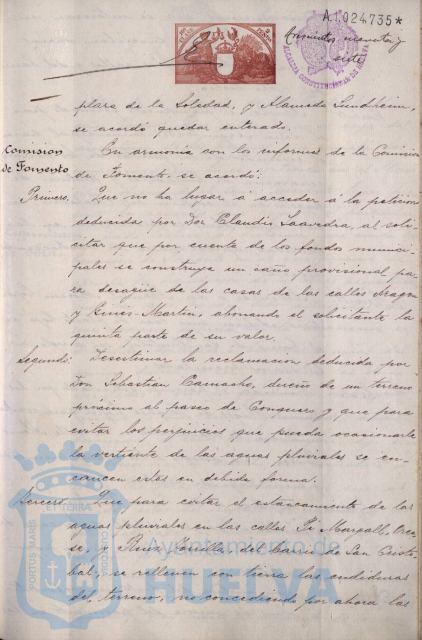 A1024735*
ALCALDIA CONSTITUCIONAL DE HUELVA
plaza de la Soledad, y Alameda Sundheim,
se acordó quedar enterado.
Comision
de Fomento
En armonía con los informes de la Comision
de Fomento se acordó:
Primero. Que no ha lugar a acceder á la peticion
deducida por Don Claudio Saavedra, al soli-
citar que por cuenta de los fondos munici-
pales se construya un caño provisional pa-
ra desagüe de las casas de las calles Aragon
y Gines-Martin, abonando el solicitante la
quinta parte de su valor.
Segundo: Desestimar la reclamacion deducida por
Don Sebastian Camacho, dueño de un terreno
próximo al paseo de Conquero y que para
evitar los perjuicios que pueda ocasionarle
la vertiente de las aguas pluviales se en-
caucen estas en debida forma.
Tercero. Que para evitar el estancamiento de las
aguas pluviales en las calles Pi Margall,
y Ruiz Zorrilla del barrio de San Cristo-
bal, se rellenen con tierra las
del terreno, no concediendo por ahora las
PORTUS MARIS ET TERRÆ CUSTODIA
Ayuntamiento de
HUELVA